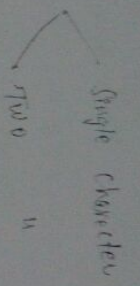 Single character
Two "